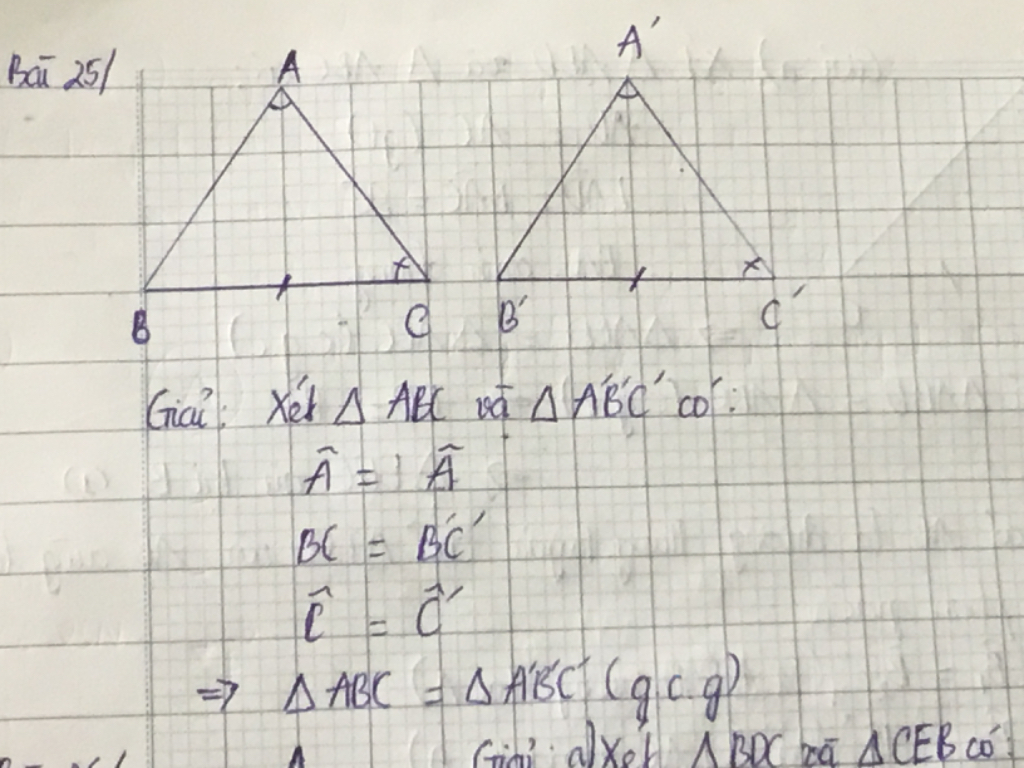 Bài 25/
A
A'
B
C
B'
C'
Giải: Xét Δ ABC và Δ A'B'C' có:
Â = Â
BC = B'C'
Ĉ = Ĉ'
=> Δ ABC = Δ A'B'C' (g.c.g)
A
Giải: a) Xét Δ BDC và Δ CEB có: